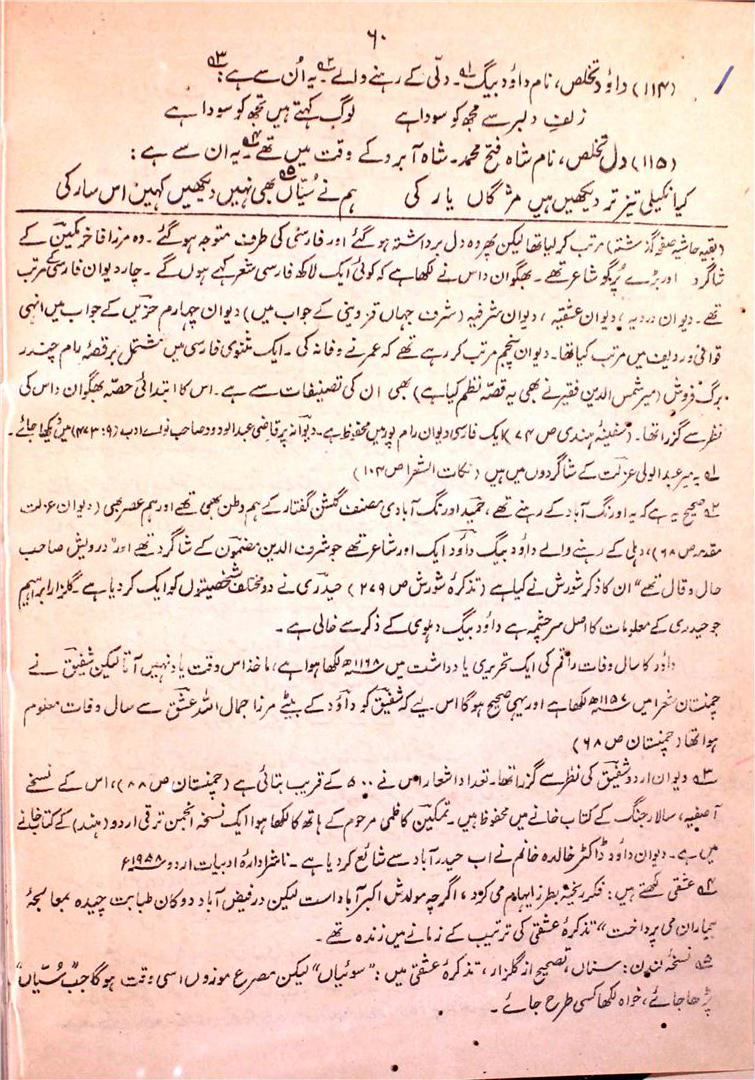 ۶۰
(۱۱۴) داؤد تخلص، نام داؤد بیگ ۱ھ۔ دلّی کے رہنے والے ۲ھ۔ یہ اُن سے ہے ۳ھ:
زلفِ دلبر سے مجھ کو سودا ہے لوگ کہتے ہیں تجھ کو سودا ہے
(۱۱۵) دل تخلص، نام شاہ فتح محمد۔ شاہ آبرو کے وقت میں تھے ۴ھ۔ یہ ان سے ہے:
کیا نکیلی تیز تر دیکھیں ہیں مژگاں یار کی ہم نے سُیّاں ۵ھ بھی نہیں دیکھیں کہیں اس سار کی
(بقیہ حاشیہ صفحہ گزشتہ) مرتب کر لیا تھا لیکن پھر وہ دل برداشتہ ہو گئے اور فارسی کی طرف متوجہ ہو گئے۔ وہ مرزا فاخر مکین کے
شاگرد اور بڑے پُرگو شاعر تھے۔ بھگوان داس نے لکھا ہے کہ کوئی ایک لاکھ فارسی شعر کہے ہوں گے۔ چار دیوان فارسی کے مرتب
تھے۔ دیوان دردیہ، دیوان عشقیہ، دیوان شرفیہ (شرف جہاں قزوینی کے جواب میں) دیوان چہارم حزیں کے جواب میں انہی
قوافی و ردیف میں مرتب کیا تھا۔ دیوان پنجم مرتب کر رہے تھے کہ عمر نے وفا نہ کی۔ ایک مثنوی فارسی میں مشتمل بر قصۂ رام چندر
برگ فروش (میر شمس الدین فقیر نے بھی یہ قصہ نظم کیا ہے) بھی ان کی تصنیفات سے ہے۔ اس کا ابتدائی حصہ بھگوان داس کی
نظر سے گزرا تھا۔ (سفینۂ ہندی ص ۷۴) ایک فارسی دیوان رام پور میں محفوظ ہے۔ دیوانہ پر قاضی عبدالودود صاحب نوائے ادب (۹: ۴۷۳) میں دیکھا جائے۔
۱ھ یہ میر عبدالولی عزلت کے شاگردوں میں ہیں (نکات الشعرا ص ۱۰۴)
۲ھ صحیح یہ ہے کہ یہ اورنگ آباد کے رہنے والے تھے، حمید اورنگ آبادی مصنف گلشن گفتار کے ہم وطن بھی تھے اور ہم عصر بھی (دیوان عزلت
مقدمہ ص ۶۸)، دہلی کے رہنے والے داؤد بیگ داؤد ایک اور شاعر تھے جو شرف الدین مضمون کے شاگرد تھے اور "درویش صاحب
حال و قال تھے" ان کا ذکر شورش نے کیا ہے (تذکرۂ شورش ص ۲۷۹) حیدری نے دو مختلف شخصیتوں کو ایک کر دیا ہے۔ گلزار ابراہیم
جو حیدری کے معلومات کا اصل سرچشمہ ہے داؤد بیگ دہلوی کے ذکر سے خالی ہے۔
داؤد کا سال وفات راقم کی ایک تحریری یادداشت میں ۱۱۶۸ھ لکھا ہوا ہے، ماخذ اس وقت یاد نہیں آتا لیکن شفیق نے
چمنستان شعرا میں ۱۱۵۷ھ لکھا ہے اور یہی صحیح ہو گا اس لیے کہ شفیق کو داؤد کے بیٹے مرزا جمال اللہ عشق سے سال وفات معلوم
ہوا تھا (چمنستان ص ۶۸)
۳ھ دیوان اردو شفیق کی نظر سے گزرا تھا۔ تعداد اشعار اس نے ۵۰۰ کے قریب بتائی ہے (چمنستان ص ۸۸)، اس کے نسخے
آصفیہ، سالار جنگ کے کتاب خانے میں محفوظ ہیں۔ تمکین کاظمی مرحوم کے ہاتھ کا لکھا ہوا ایک نسخہ انجمن ترقی اردو (ہند) کے کتاب خانے
میں ہے۔ دیوان داؤد ڈاکٹر خالدہ خانم نے اب حیدرآباد سے شائع کر دیا ہے۔ ناشر ادارۂ ادبیات اردو ۱۹۵۸ء
۴ھ عشقی لکھتے ہیں: فکر ریختہ بطرز ایہام می کرد، اگرچہ مولدش اکبرآباد است لیکن در فیض آباد دوکان طبابت چیدہ بمعالجۂ
بیماراں می پرداخت" تذکرۂ عشقی کی ترتیب کے زمانے میں زندہ تھے۔
۵ھ نسخۂ ن: سناں، تصحیح از گلزار، تذکرۂ عشقی میں: "سوئیاں" لیکن مصرع موزوں اسی وقت ہو گا جب "سُیّاں"
پڑھا جائے، خواہ لکھا کسی طرح جائے۔